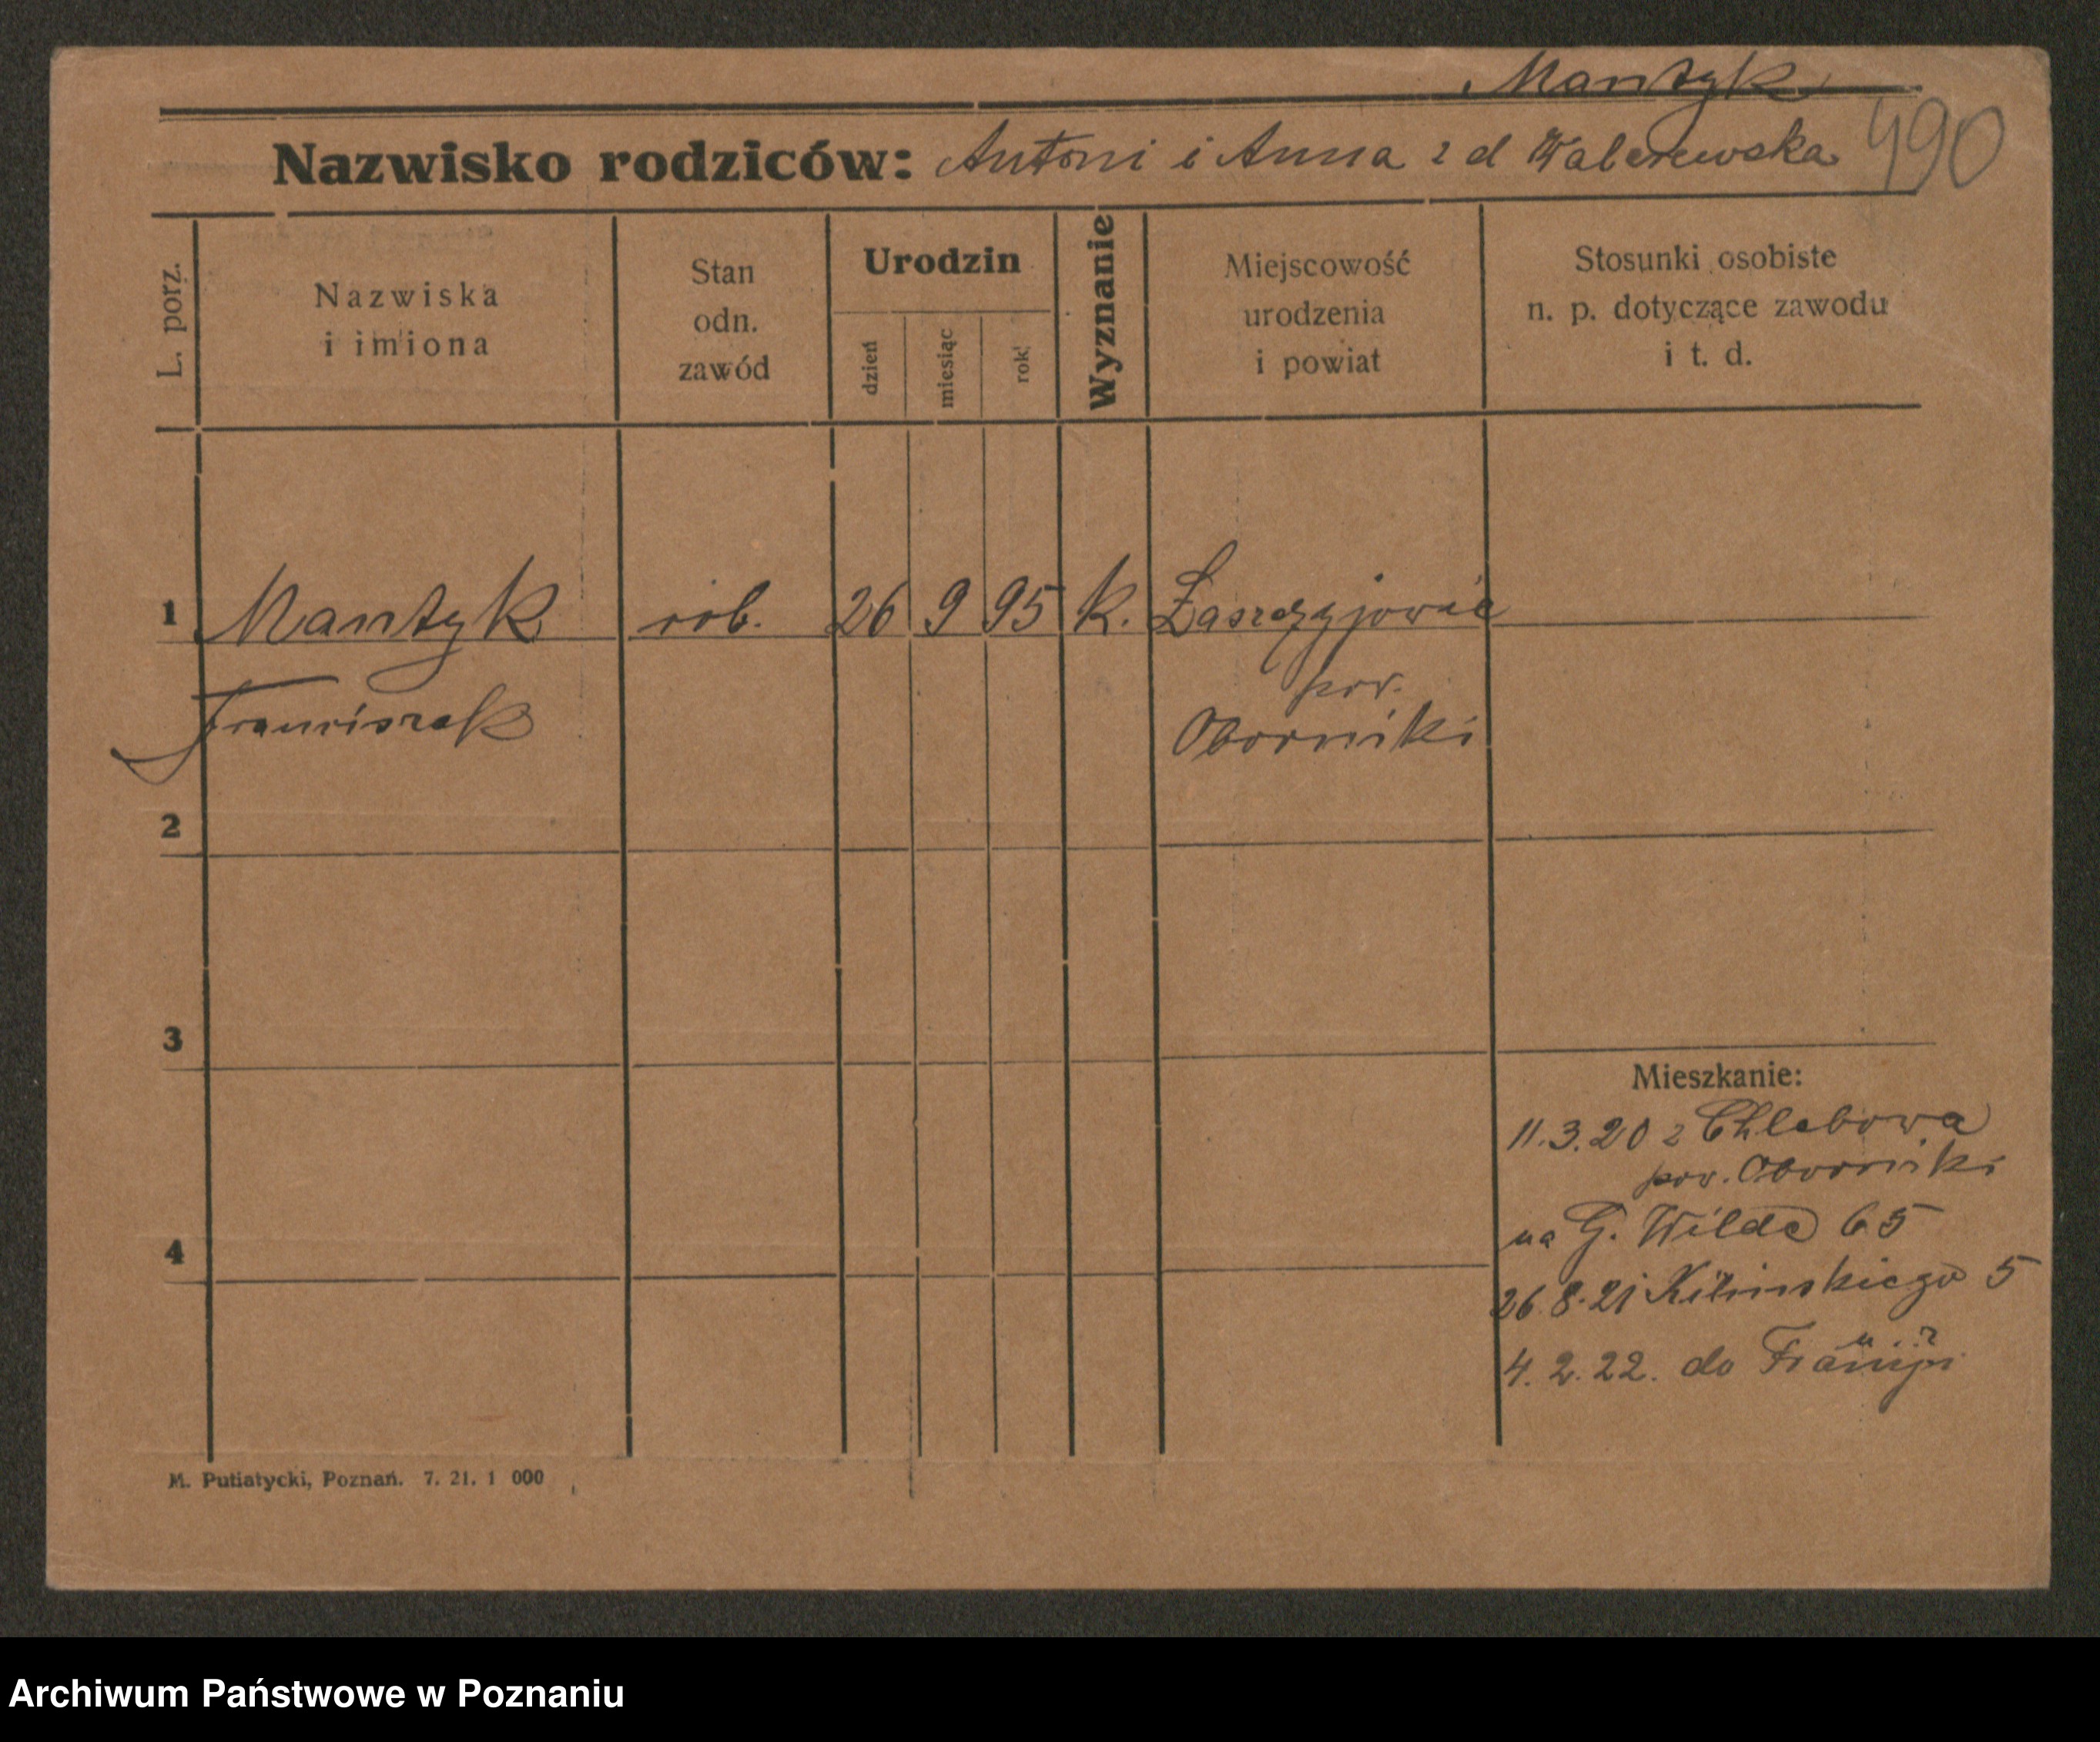 Mantyk
Nazwisko rodziców: Antoni i Anna z d Walerewska
490
L. porz.
Nazwiska
i imiona
Stan
odn.
zawód
Urodzin
dzień
miesiąc
rok
Wyznanie
Miejscowość
urodzenia
i powiat
Stosunki osobiste
n. p. dotyczące zawodu
i t. d.
1 Mantyk rob. 26 9 95 k.
Franciszek
pow.
Oborniki
2
3
4
Mieszkanie:
11.3.20 z Chlebowa
pow. Oborniki
na G. Wilde 65
26.8.21 Kilinskiego 5
4.2.22. do
M. Putiatycki, Poznań. 7. 21. 1 000
Archiwum Państwowe w Poznaniu